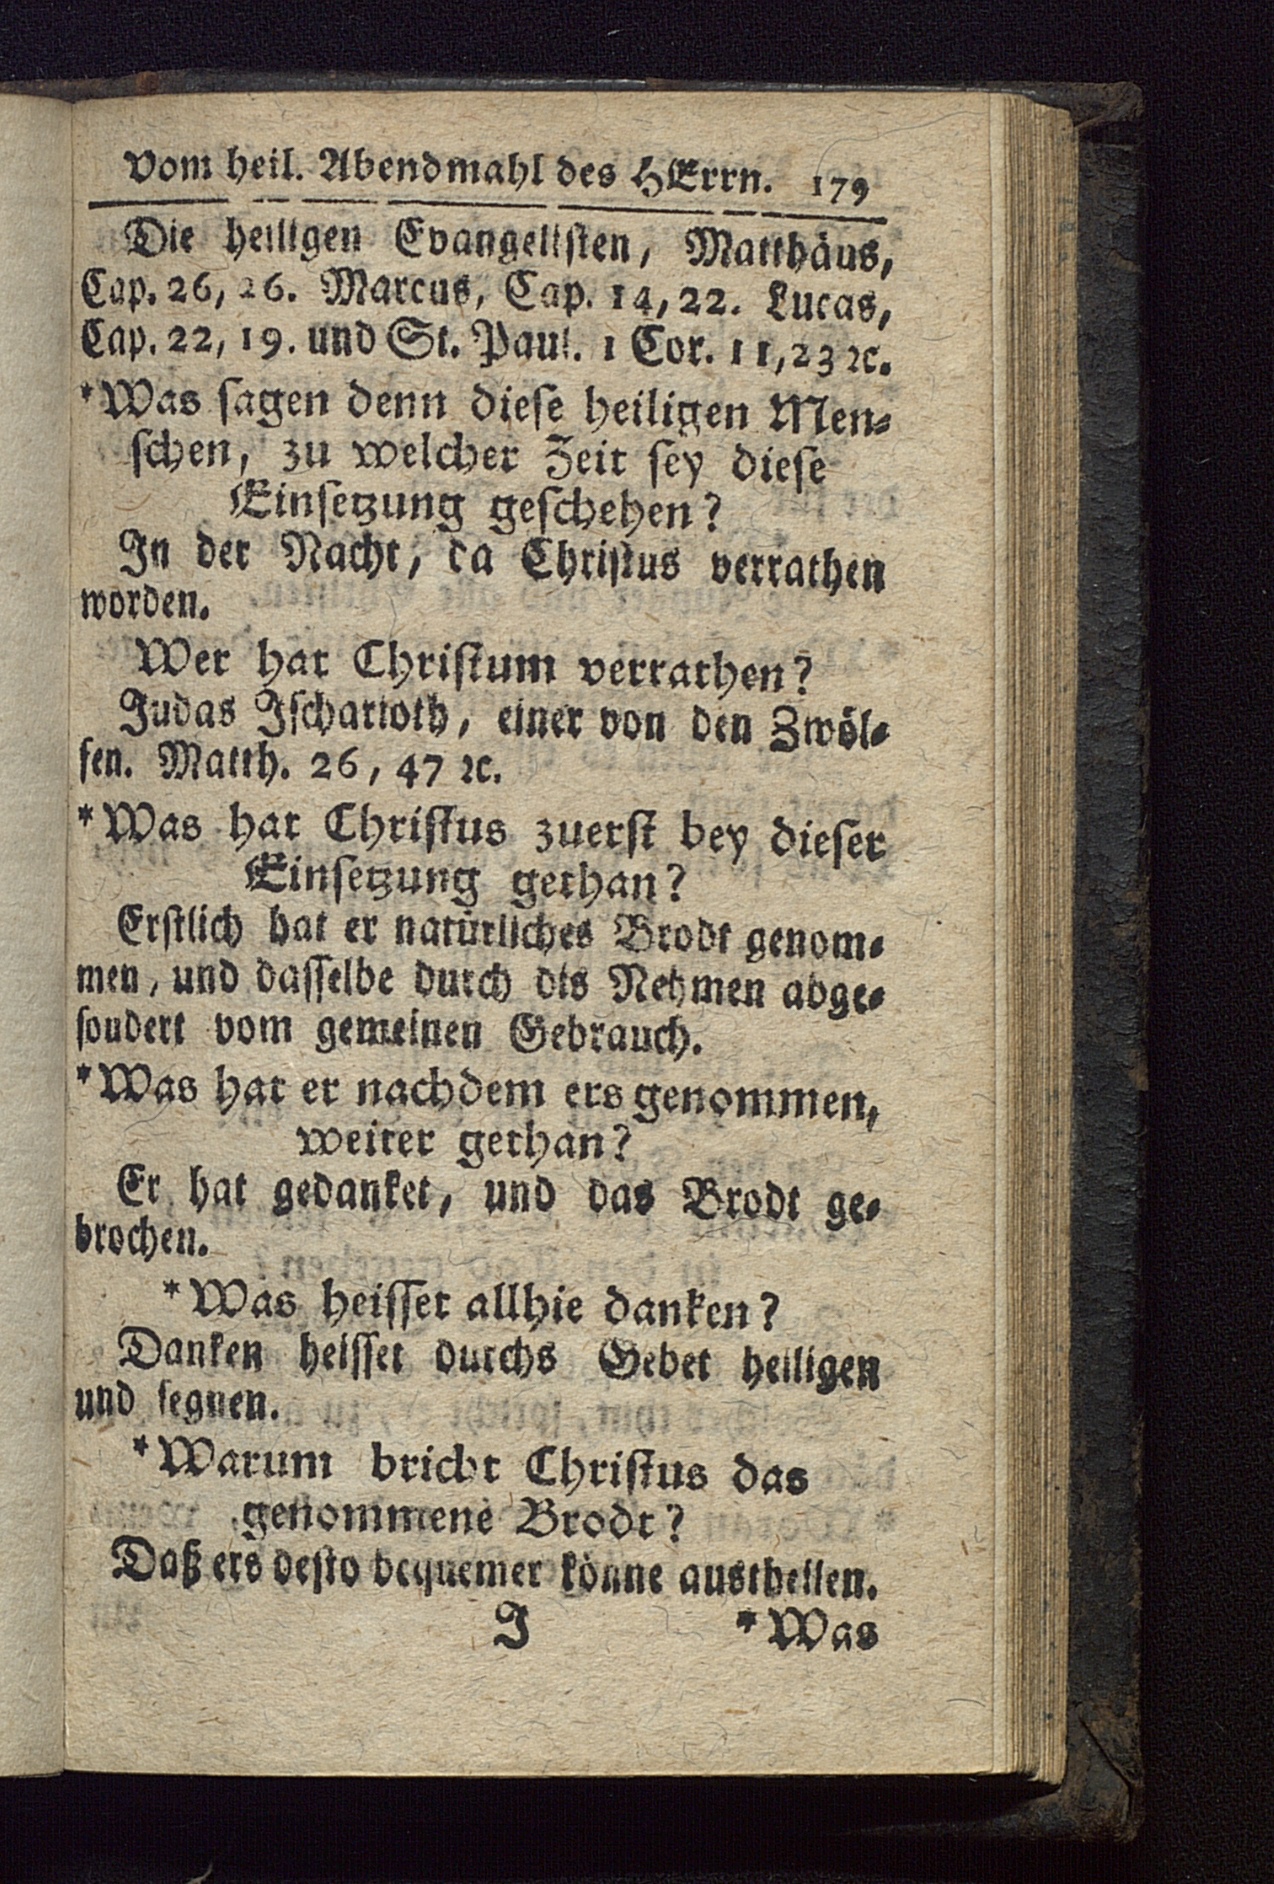 Vom heil. Abendmahl des HErrn. 179
Die heiligen Evangelisten, Matthäus,
Cap. 26, 26. Marcus, Cap. 14, 22. Lucas,
Cap. 22, 19. und St. Paul. 1 Cor. 11, 23 ꝛc.
*Was sagen denn diese heiligen Men-
schen, zu welcher Zeit sey diese
Einsetzung geschehen?
In der Nacht, da Christus verrathen
worden.
Wer hat Christum verrathen?
Judas Ischarioth, einer von den Zwöl-
fen. Matth. 26, 47 ꝛc.
*Was hat Christus zuerst bey dieser
Einsetzung gethan?
Erstlich hat er natürliches Brodt genom-
men, und dasselbe durch dis Nehmen abge-
sondert vom gemeinen Gebrauch.
*Was hat er nachdem ers genommen,
weiter gethan?
Er hat gedanket, und das Brodt ge-
brochen.
*Was heisset allhie danken?
Danken heisset durchs Gebet heiligen
und segnen.
*Warum bricht Christus das
genommene Brodt?
Daß ers desto bequemer könne austheilen.
J *Was